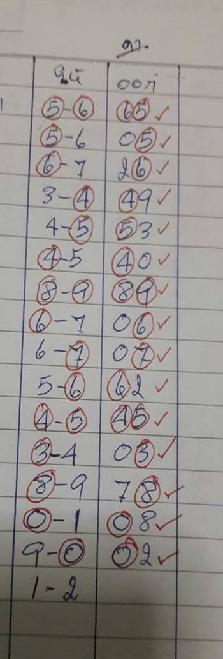 5-6 65 ✓
5-6 05 ✓
6-7 26 ✓
3-4 49 ✓
4-5 53 ✓
4-5 40 ✓
8-9 89 ✓
6-7 06 ✓
6-7 07 ✓
5-6 62 ✓
4-5 45 ✓
3-4 03 ✓
8-9 78 ✓
0-1 08 ✓
9-0 02 ✓
1-2